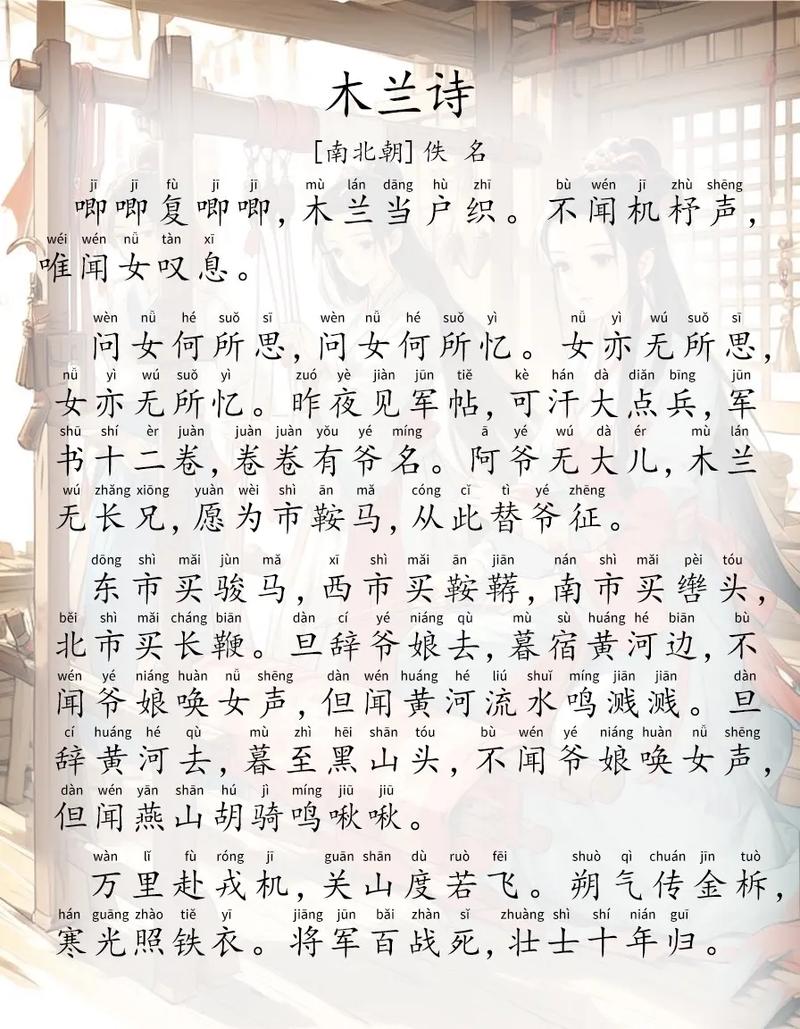 木兰诗
[南北朝] 佚 名
jī jī fù jī jī mù lán dāng hù zhī bù wén jī zhù shēng
唧唧复唧唧,木兰当户织。不闻机杼声,
wéi wén nǚ tàn xī
唯闻女叹息。
wèn nǚ hé suǒ sī wèn nǚ hé suǒ yì nǚ yì wú suǒ sī
问女何所思,问女何所忆。女亦无所思,
nǚ yì wú suǒ yì zuó yè jiàn jūn tiě kè hán dà diǎn bīng jūn
女亦无所忆。昨夜见军帖,可汗大点兵,军
shū shí èr juàn juàn juàn yǒu yé míng ā yé wú dà ér mù lán
书十二卷,卷卷有爷名。阿爷无大儿,木兰
wú zhǎng xiōng yuàn wèi shì ān mǎ cóng cǐ tì yé zhēng
无长兄,愿为市鞍马,从此替爷征。
dōng shì mǎi jùn mǎ xī shì mǎi ān jiān nán shì mǎi pèi tóu
东市买骏马,西市买鞍鞯,南市买辔头,
běi shì mǎi cháng biān dàn cí yé niáng qù mù sù huáng hé biān bù
北市买长鞭。旦辞爷娘去,暮宿黄河边,不
wén yé niáng huàn nǚ shēng dàn wén huáng hé liú shuǐ míng jiān jiān dàn
闻爷娘唤女声,但闻黄河流水鸣溅溅。旦
cí huáng hé qù mù zhì hēi shān tóu bù wén yé niáng huàn nǚ shēng
辞黄河去,暮至黑山头,不闻爷娘唤女声,
dàn wén yān shān hú jì míng jiū jiū
但闻燕山胡骑鸣啾啾。
wàn lǐ fù róng jī guān shān dù ruò fēi shuò qì chuán jīn tuò
万里赴戎机,关山度若飞。朔气传金柝,
hán guāng zhào tiě yī jiāng jūn bǎi zhàn sǐ zhuàng shì shí nián guī
寒光照铁衣。将军百战死,壮士十年归。